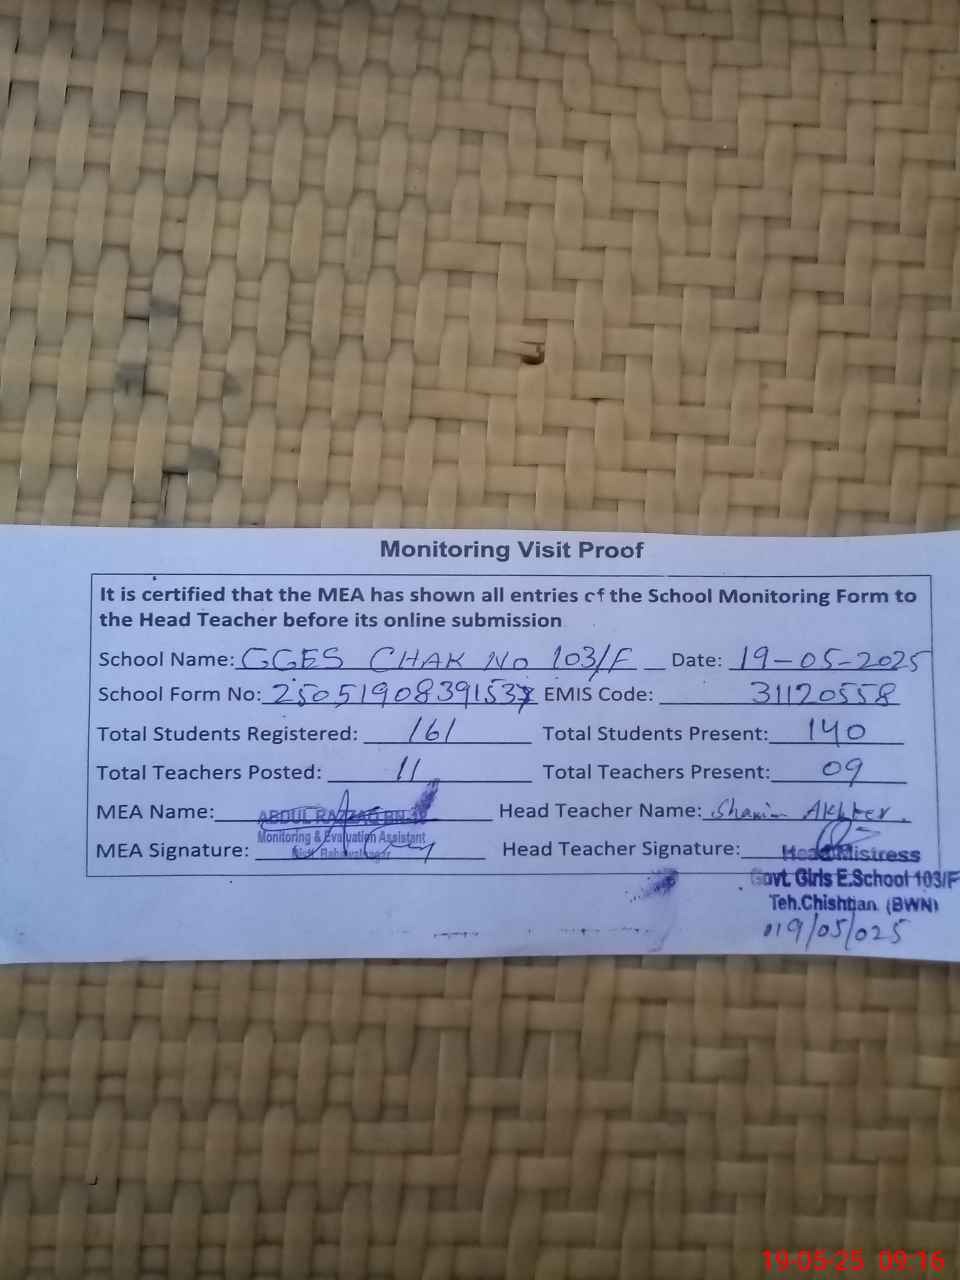 Monitoring Visit Proof
It is certified that the MEA has shown all entries of the School Monitoring Form to
the Head Teacher before its online submission
School Name: GGES CHAK NO 103/F Date: 19-05-2025
School Form No: 250519083915 EMIS Code: 31120558
Total Students Registered: 161 Total Students Present: 140
Total Teachers Posted: 11 Total Teachers Present: 09
MEA Name: ABDUL RAZZAQ Head Teacher Name: Shamim Akhter.
Monitoring & Evaluation Assistant
MEA Signature: Head Teacher Signature:
Distt. Bahawalnagar
Head Mistress
Govt. Girls E.School 103/F
Teh.Chishtian (BWN)
019/05/025
19-05-25 09:16